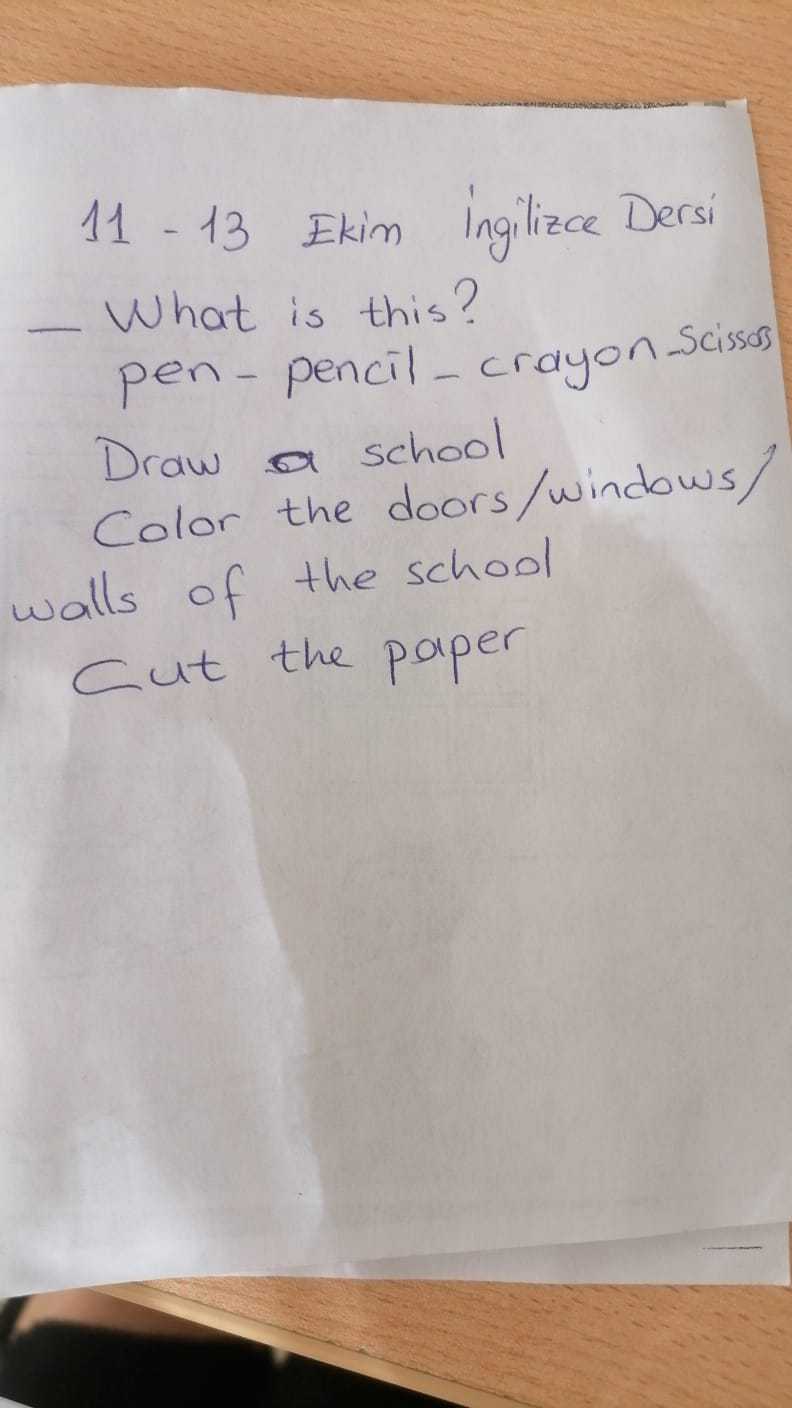 11 - 13 Ekim İngilizce Dersi
— What is this?
pen - pencil - crayon - Scissors
Draw a school
Color the doors/windows/
walls of the school
Cut the paper